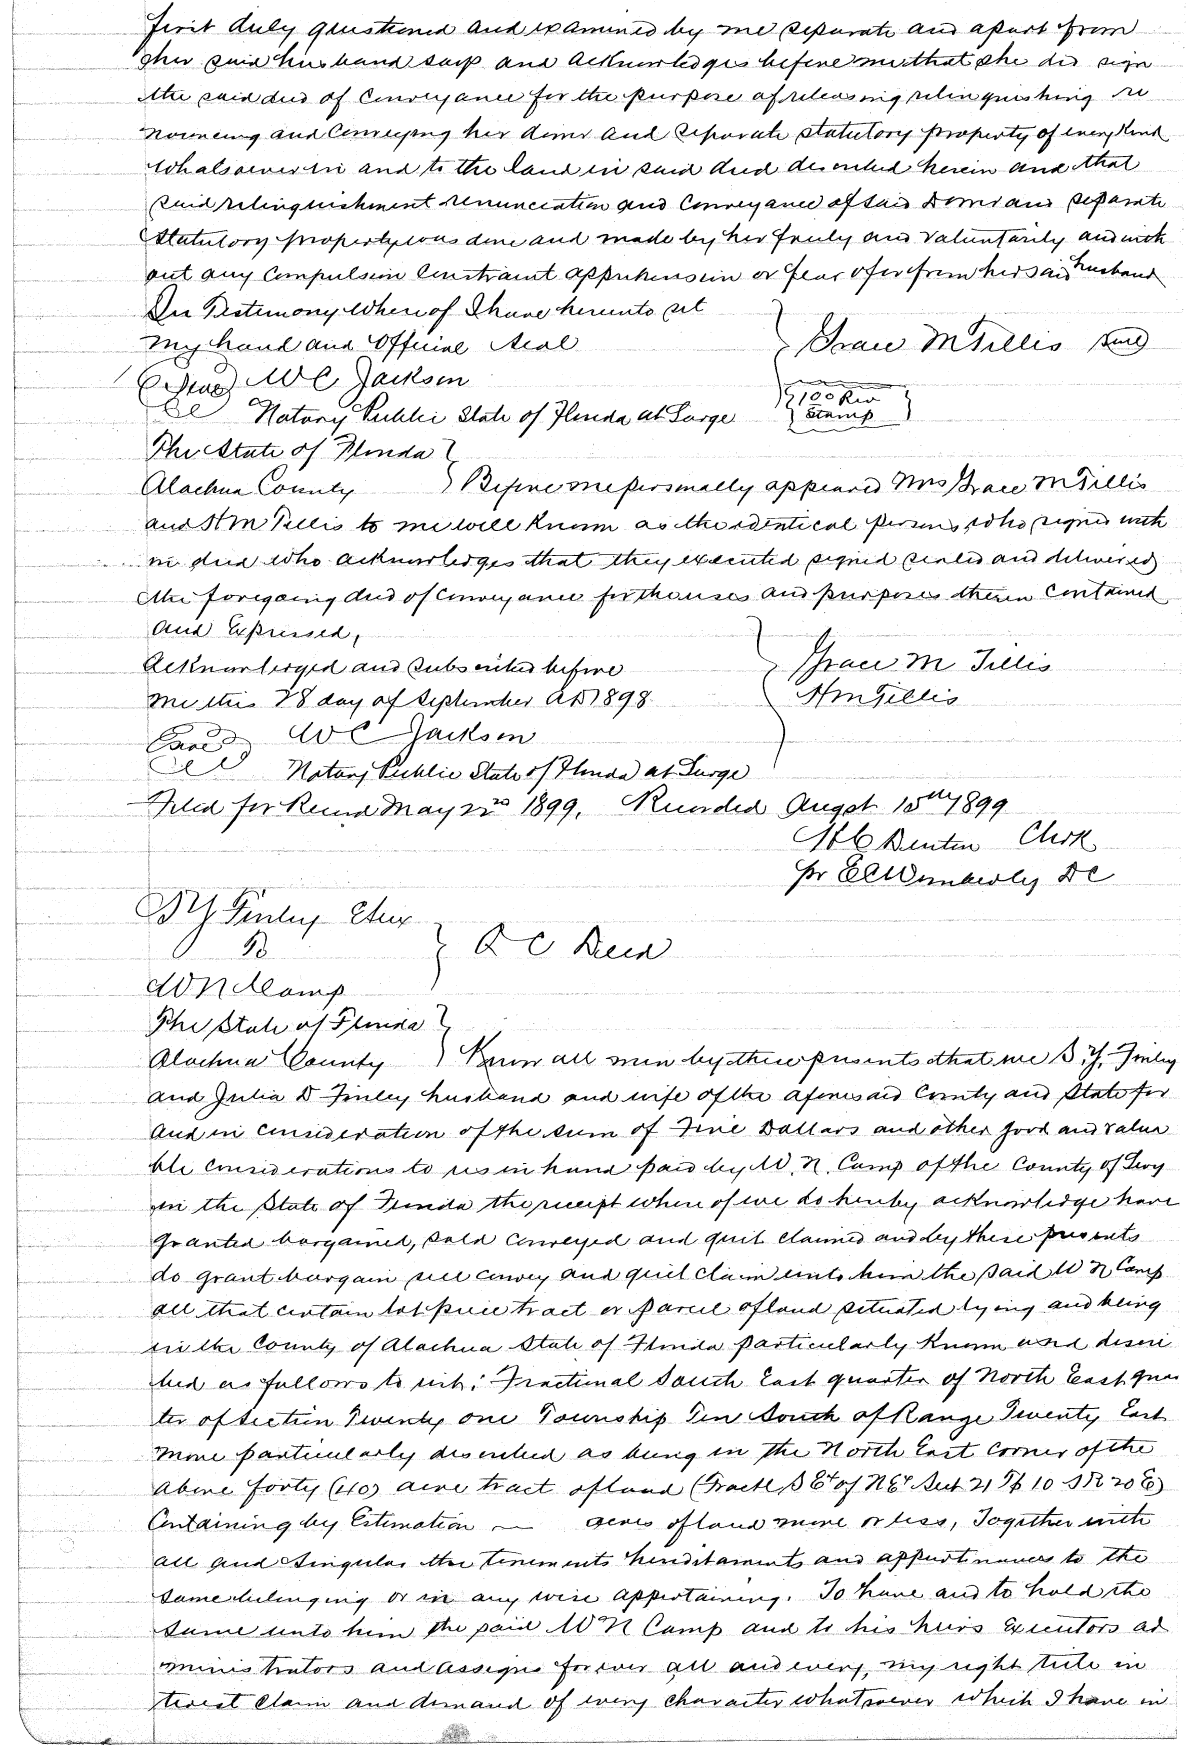 first duly questioned and examined by me separate and apart from
her said husband says and acknowledges before me that she did sign
the said deed of Conveyance for the purpose of releasing relinquishing re
nouncing and Conveying her dower and separate statutory property of every Kind
whatsoever in and to the land in said deed described herein and that
said relinquishment renunciation and Conveyance of said Dower and separate
Statutory property was done and made by her freely and voluntarily and with
out any Compulsion Constraint apprehension or fear of or from her said husband
In Testimony Whereof I have hereunto set
my hand and Official Seal
Grace M Tillis seal
Seal W C Jackson
100 Rev
Stamp
Notary Public State of Florida at Large
The State of Florida
Alachua County Before me personally appeared Mrs Grace M Tillis
and H M Tillis to me well Known as the identical persons who signed with
in deed who acknowledges that they executed signed sealed and delivered
the foregoing deed of Conveyance for the uses and purposes therein Contained
and Expressed,
Acknowledged and subscribed before
Grace M Tillis
me this 28 day of September AD 1898
H M Tillis
Seal W C Jackson
Notary Public State of Florida at Large
Filed for Record May 22nd 1899, Recorded Augst 15th 1899
Denton Clerk
pr E C Wimberly DC
B Y Finley Etux
Q C Deed
W N Camp
The State of Florida
Alachua County Know all men by these presents that we B. Y. Finley
and Julia D Finley husband and wife of the aforesaid County and State for
and in Consideration of the sum of Five Dollars and other good and valua
ble Considerations to us in hand paid by W. N. Camp of the County of Levy
in the State of Florida the receipt where of we do hereby acknowledge have
granted bargained, sold conveyed and quit claimed and by these presents
do grant bargain sell convey and quit claim unto him the said W N Camp
all that certain lot piece tract or parcel of land situated lying and being
in the County of Alachua State of Florida particularly Known and descri
bed as follows to wit: Fractional South East quarter of North East quar
ter of Section Twenty one Township Ten South of Range Twenty East
more particularly described as being in the North East Corner of the
above forty (40) acre tract of land (Fractl S Er of N Er Sect 21 Tp 10 S R 20 E)
Containing by Estimation — acres of land more or less, Together with
all and Singular the tenements hereditaments and appurtenances to the
same belonging or in any wise appertaining. To have and to hold the
same unto him the said W N Camp and to his heirs Executors ad
ministrators and assigns forever all and every, my right title in
terest claim and demand of every character whatsoever which I have in